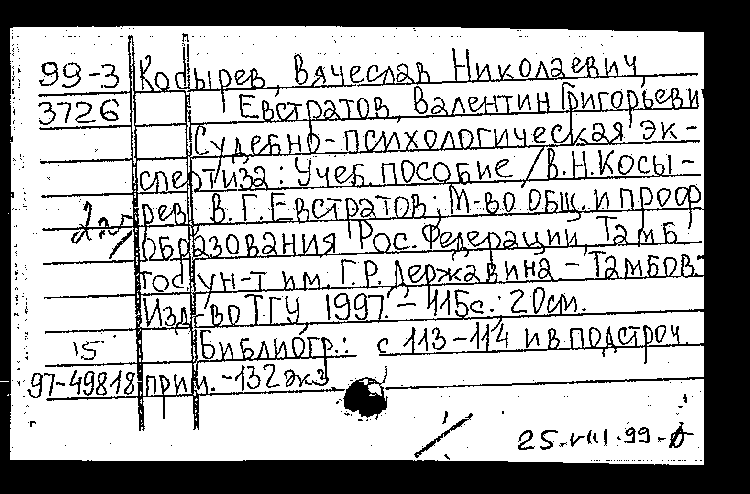 99-3 Косырев, Вячеслав Николаевич,
3726 Евстратов, Валентин Григорьевич
Судебно-психологическая эк-
спертиза: Учеб. пособие / В.Н. Косы-
рев, В.Г. Евстратов; М-во общ. и проф
образования Рос. Федерации, Тамб
гос ун-т им. Г.Р. Державина - Тамбов:
Изд-во ТГУ, 1997. - 115с.; 20см.
15 Библиогр.: с 113-114 и в подстроч.
97-49818 прим. -132 экз
25.VIII.99-